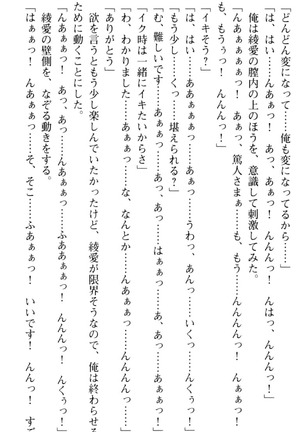 「どんどん変になって……俺も変になってるから……」
「は、はい……んあぁっ！　あっ、んんっ！　んはっ、んんんっ！
　んあぁぁっ……あぁぁっ、篤人さまぁっ……も、もう……んんんんっ！
も、もうぅっ！　んんんっ！」
　俺は綾愛の膣内の上のほうを、意識して刺激してみた。
「イキそう？」
「は、はい……ああぁぁっ……あぁぁっ……うわっ、あんっ……いくっ……んくぅっ！」
「もう少し……くっ……堪えられる？」
「む、難しいです……あぁぁっ……あっ、あっ……はぁぁっ……あ、あっ、あぁぁっ！」
「イク時は一緒にイキたいからさ」
「わ、わかりました……あぁぁっ……な、なんとか……んあぁぁっ……んんんんっ……」
「ありがとう」
　欲を言うともう少し楽しんでいたかったけど、綾愛が限界そうなので、俺は終わらせる
ために動くことにした。
「んあぁぁっ！　あっ、あっ……んあぁぁっ……ふああぁぁっ！　んんんっ！　んくぅっ！」
　綾愛の壁側を、なぞる動きをする。
「はぁぁっ！　んあぁぁっ……そ、そこ……ふあぁぁっ！　いいです！　んんっ！　すご